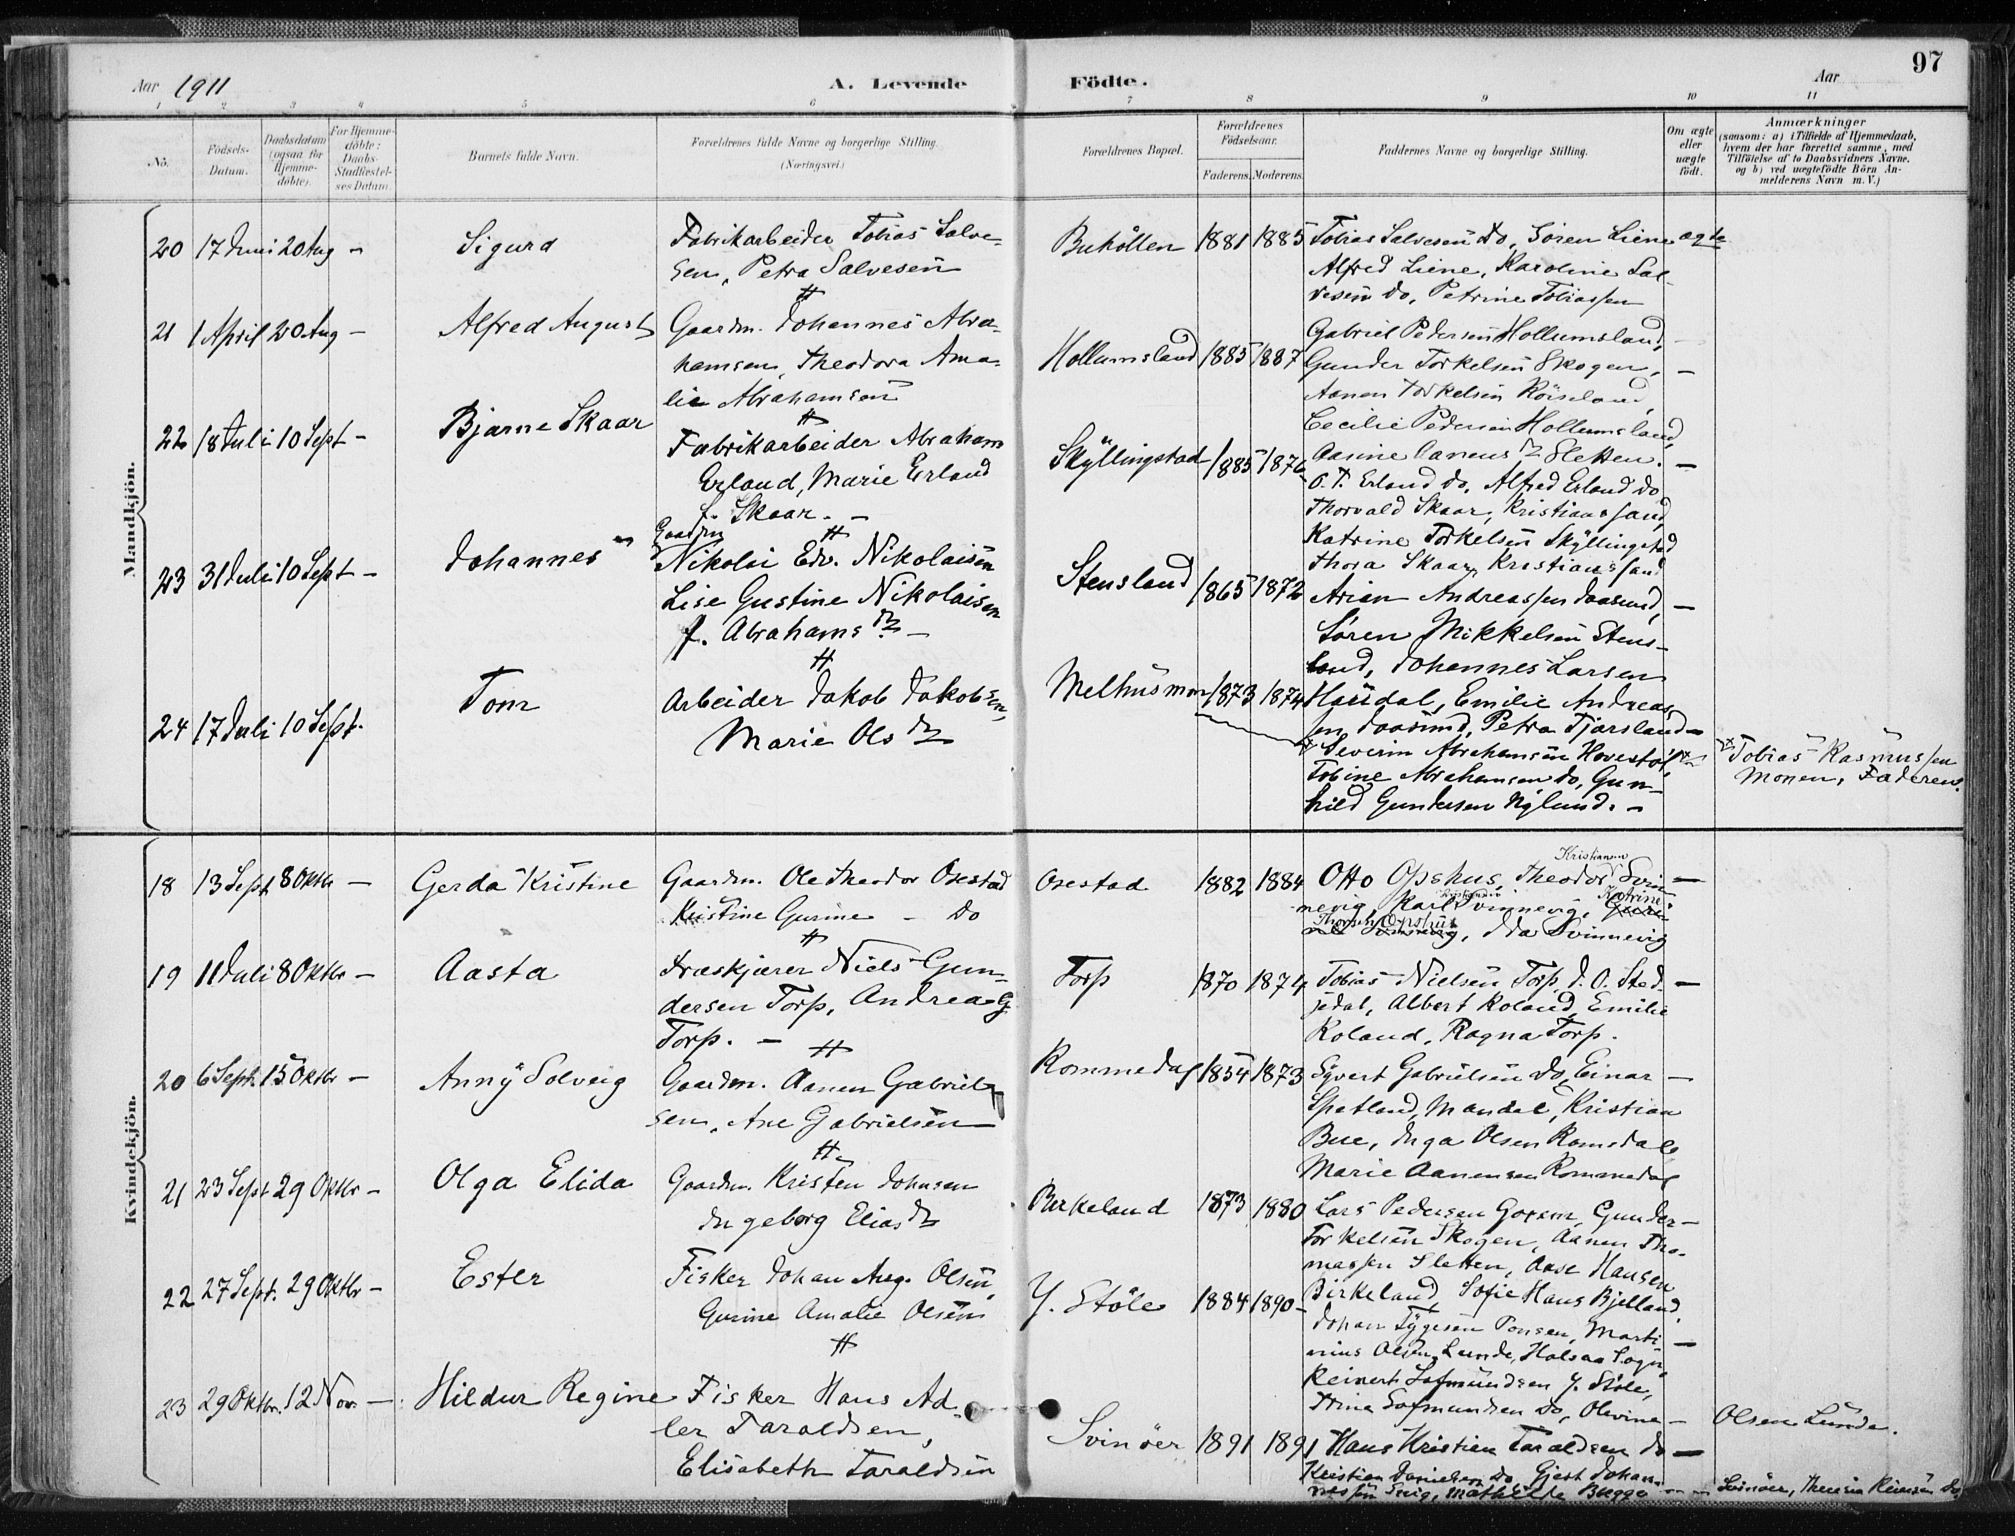 Aar 1911
A. Levende Fødte.
Aar
97
1 2 3 4 5 6 7 8 9 10 11
No.
Födsels-Datum.
Daabsdatum (ogsaa for Hjemme-döbte).
For Hjemme-döbte: Daabs-Stadfæstel-ses Datum.
Barnets fulde Navn.
Forældrenes fulde Navne og borgerlige Stilling.
(Næringsvei.)
Forældrenes Bopæl.
Forældrenes Födselsaar.
Faderens. Moderens.
Faddernes Navne og borgerlige Stilling.
Om ægte eller uægte födt.
Anmærkninger
(saasom: a) i Tilfælde af Hjemmedaab,
hvem der har forrettet samme, med
Tilföielse af to Daabsvidners Navne.
og b) ved uægtefödte Börn An-
melderens Navn m. V.)
Mandkjön.
20 17 Juni 20 Aug - Sigurd
Fabrikarbeider Tobias Salve-
sen, Petra Salvesen
Buhöllen 1881 1885
Tobias Salvesen do, Søren Liene ægte
Alfred Liene, Karoline Sal-
vesen do, Petrine Tobiassen
21 1 April 20 Aug - Alfred August
Gaardm. Johannes Abra-
hamsen, Theodora Ama-
lie Abrahamsen
Hollumsland 1885 1887
Gabriel Pedersen Hollumsland,
Gunder Torkelsen Skogen, -
Aanen Torkelsen Röiseland,
Cecilie Pedersen Hollumsland,
Aasine Aanensdt Sletten. -
22 18 Juli 10 Sept - Bjarne Skaar
Fabrikarbeider Abraham
Erland, Marie Erland
f. Skaar. -
Skyllingstad 1885 1876
O. T. Erland do, Alfred Erland do
Thorvald Skaar, Kristianssand,
Katrine Torkelsen Skyllingstad
Thora Skaar, Kristianssand
23 31 Juli 10 Sept - Johannes
Gaardm
Nikolai Edv. Nikolaisen
Lise Gustine Nikolaisen
f. Abrahamsdt -
Stensland 1865 1872
Arian Andreassen Faasund, -
Søren Mikkelsen Stens-
land, Johannes Larsen
Hausdal, Emilie Andreas-
sen Faasund, Petra Tjorsland -
24 17 Juli 10 Sept. Tom
Arbeider Jakob Jakobsen,
Marie Olsdt
Melhusmoen 1873 1874
Severin Abrahamsen Hovestøl,
Tobine Abrahamsen do, Gun-
hild Gundersen Nglund. -
Tobias Rasmussen
Monen, Faderens.
Kvindekjön.
18 13 Sept 8 Oktbr - Gerda Kristine
Gaardm. Ole Theodor Osestad
Kristine Gurine - do
Osestad 1882 1884
Kristiansen
Otto Opshus, Theodor Svin- -
nevig, Karl Svinnevig, Katrine
Opshus, Ida Svinnevig
19 11 Juli 8 Oktbr - Aasta
Træskjærer Niels Gun-
dersen Torp, Andrea G
Torp. -
Torp 1870 1874
Tobias Nielsen Torp, J. O. Sted- -
jedal, Albert Roland, Emilie
Roland, Ragna Torp.
20 6 Sept 15 Oktbr - Anny Solveig
Gaardm. Aanen Gabriel-
sen, Ane Gabrielsen
Rommedal 1854 1873
Syvert Gabrielsen do, Einar -
Spetland, Mandal, Kristian
Bue, Inga Olsen Romsdal
Marie Aanensen Rommedal
21 23 Sept 29 Oktbr - Olga Elida
Gaardm. Kristen Johnsen
Ingeborg Eliasdt
Birkeland 1873 1880
Lars Pedersen Goksem, Gunder -
Torkelsen Skogen, Aanen Tho-
massen Sletten, Aase Hansen
Birkeland, Sofie Hans Bjelland
22 27 Sept. 29 Oktbr - Ester
Fisker Johan Aug. Olsen,
Gurine Amalie Olsen
Y. Støle 1884 1890 -
Johan Tygesen Ponsen, Marti- -
nius Olsen Lunde, Halsaa Sogn,
Reinert Lofmundsen Y. Støle,
Trina Lofmundsen do, Olevine -
Olsen Lunde.
23 29 Oktbr. 12 Nov. - Hildur Regine
Fisker Hans Ad-
ler Taraldsen,
Elisabeth Taraldsen
Svinøer 1891 1891
Hans Kristian Taraldsen do -
Kristian Danielsen do, Gjert Johan-
nessen Snig, Mathilde Bugge -
Svinøer, Theresia Reiersen do,